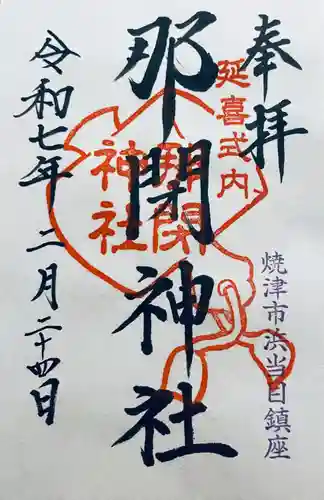 奉拝
延喜式内
焼津市浜当目鎮座
那閉神社
那閉神社
令和七年二月二十四日